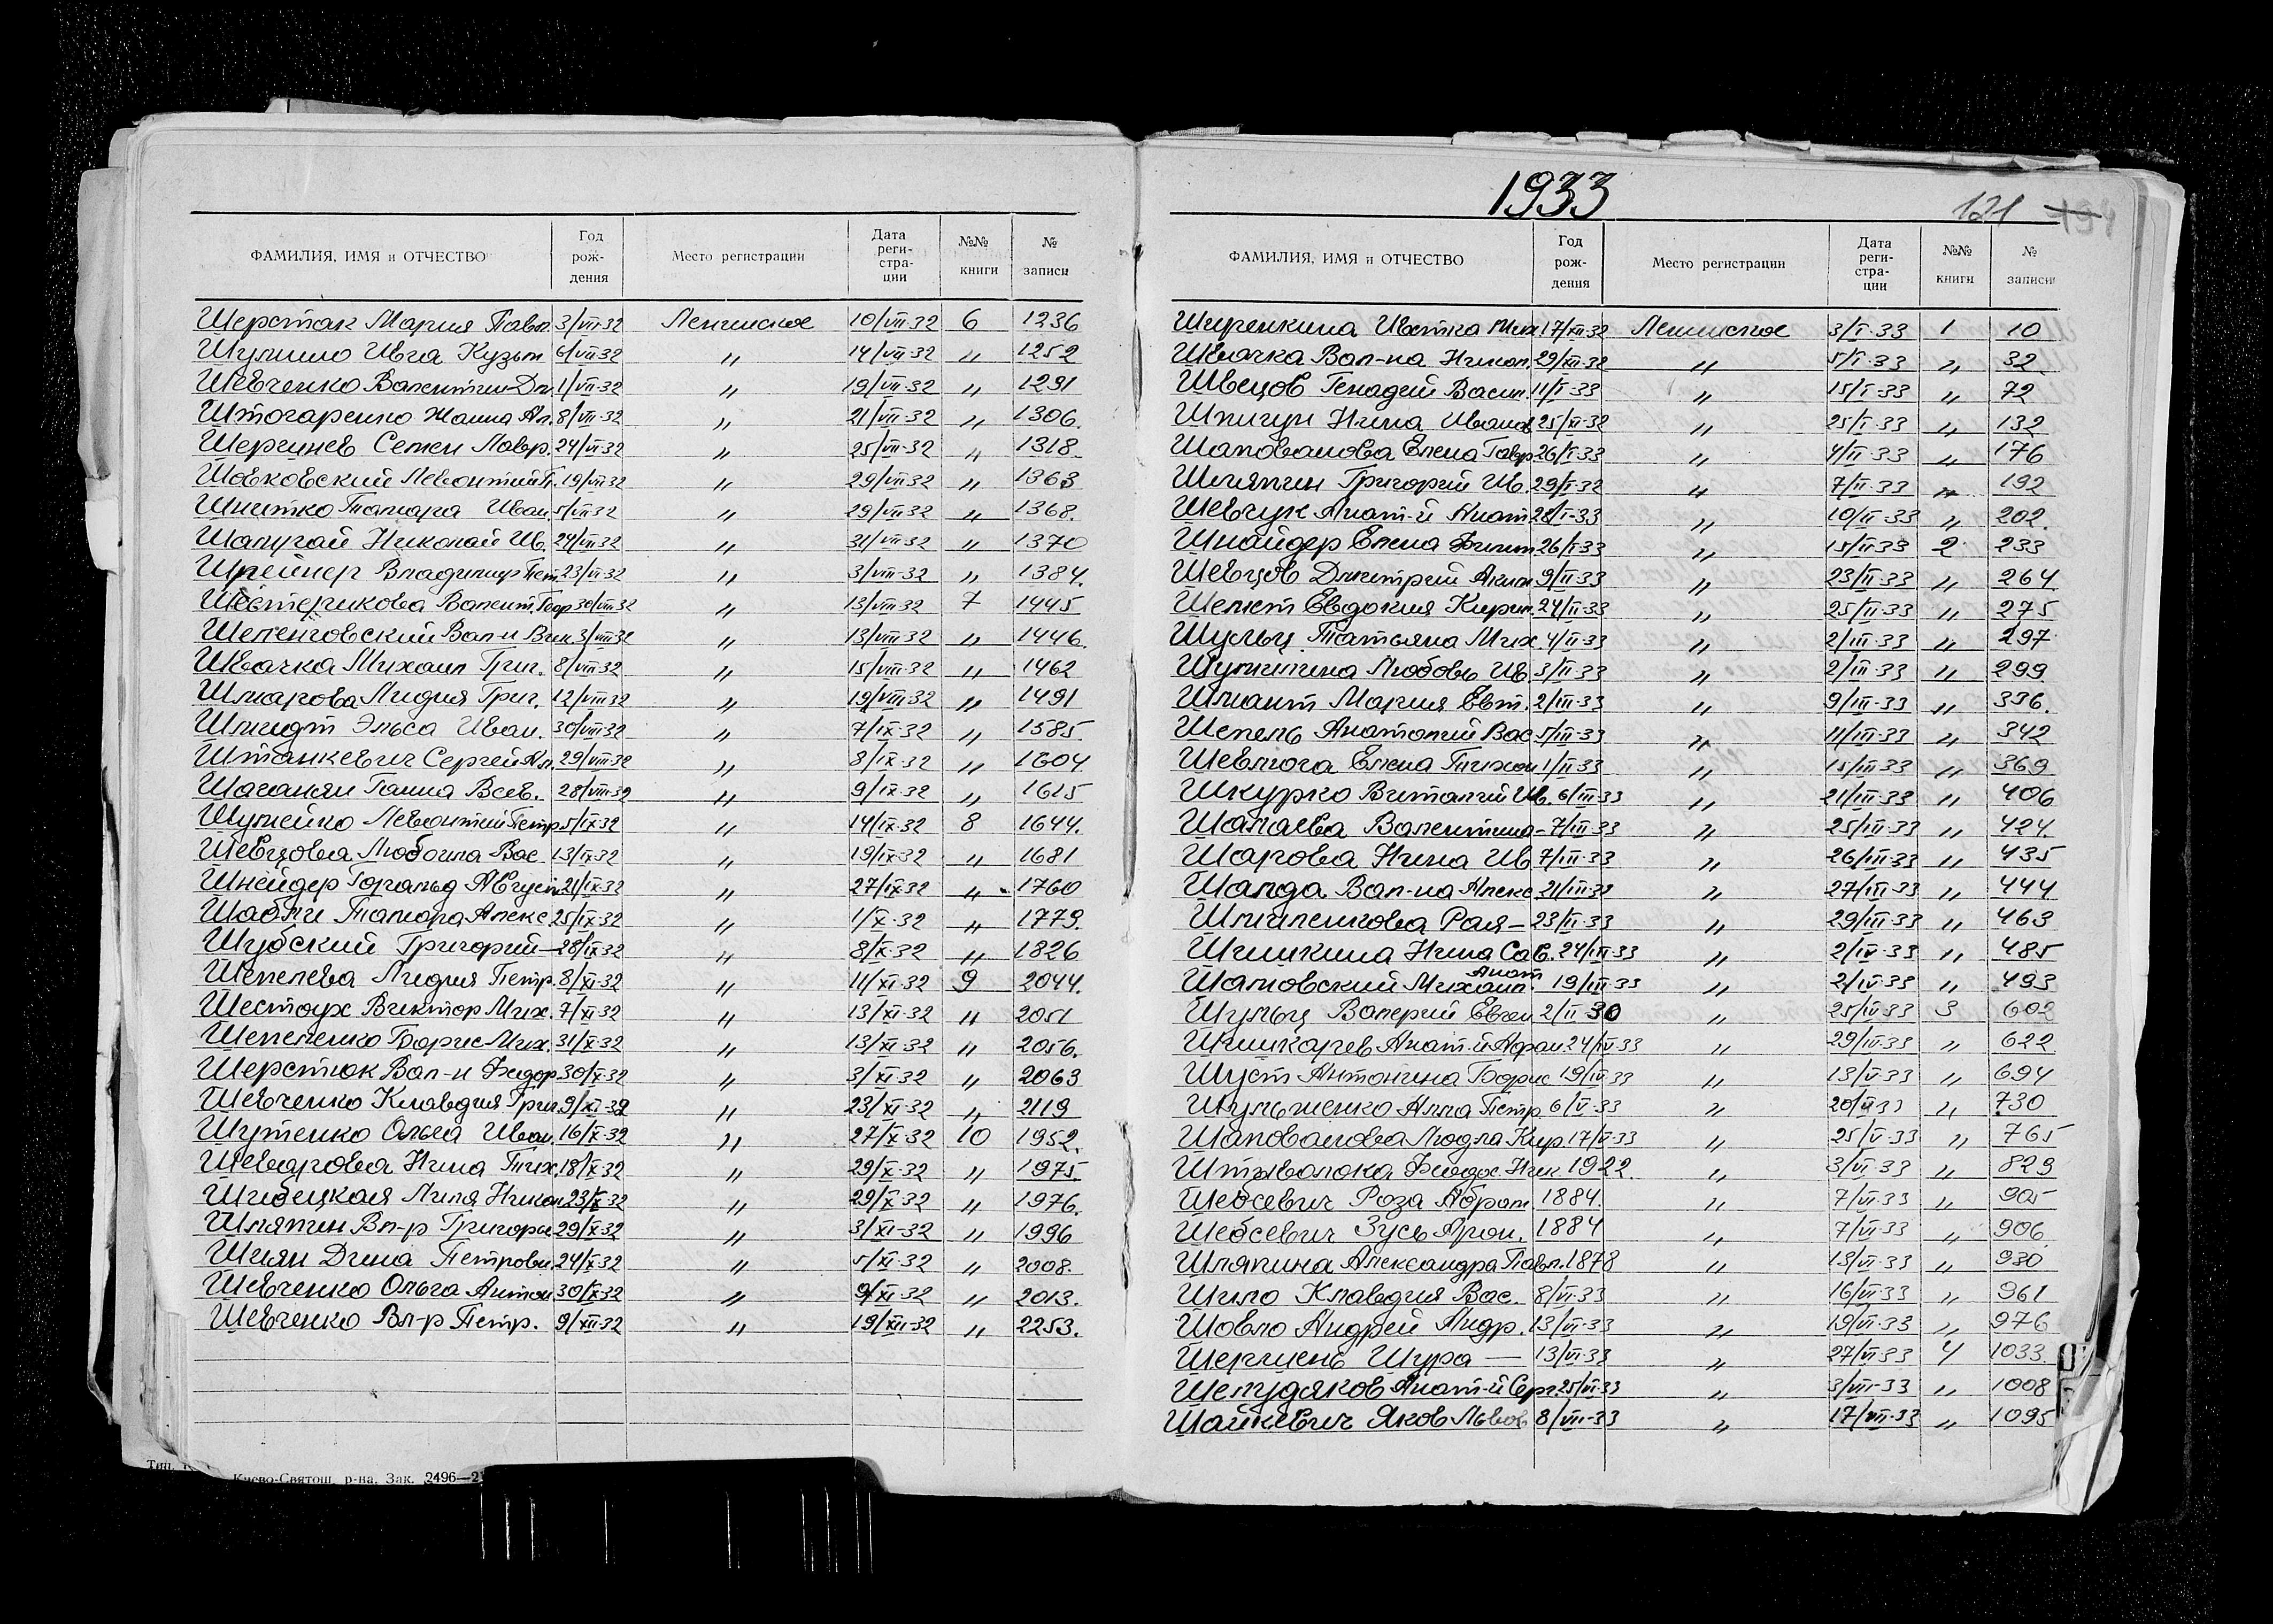 ФАМИЛИЯ, ИМЯ и ОТЧЕСТВО Год рождения Место регистрации Дата регистрации №№ книги № записи
Шерстак Мария Павл. 3/VII-32 Ленинское 10/VII-32 6 1236
Шумило Ивга Кузьм 6/VII-32 " 14/VII-32 " 1252
Шевченко Валентин Дм. 1/VII-32 " 19/VII-32 " 1291
Штогаренко Жанна Ал. 8/VII-32 " 21/VII-32 " 1306.
Шершнев Семен Лавр. 24/VI-32 " 25/VII-32 " 1318.
Шовковский Левонтий П. 19/VII-32 " 29/VII-32 " 1363
Шнитко Тамара Иван. 5/VII-32 " 29/VII-32 " 1368.
Шапугай Николай Ив. 24/VII-32 " 31/VII-32 " 1370
Шрейнер Владимир Пет. 23/VI-32 " 3/VIII-32 " 1384.
Шестерикова Валент. Геор 30/VIII-32 " 13/VIII-32 7 1445
Шеленговский Вал-н Вик. 3/VIII-32 " 13/VIII-32 " 1446.
Швачка Михаил Григ. 8/VIII-32 " 15/VIII-32 " 1462
Шмарова Лидия Григ. 12/VIII-32 " 19/VIII-32 " 1491
Шмидт Эльса Иван. 30/VIII-32 " 7/IX-32 " 1585.
Штанкевич Сергей Ал. 29/VIII-32 " 8/IX-32 " 1604
Шаганян Ганна Всев. 28/VIII-32 " 9/IX-32 " 1615
Шумейко Левонтий Петр 5/IX-32 " 14/IX-32 8 1644.
Шевцова Любочла Вас. 13/IX-32 " 19/IX-32 " 1681
Шнейдер Гаральд Август. 21/IX-32 " 27/IX-32 " 1760
Тамара Алекс 25/IX-32 " 1/X-32 " 1779.
Шубский Григорий — 28/IX-32 " 8/X-32 " 1826
Шепелева Лидия Петр. 8/XI-32 " 11/XI-32 9 2044.
Шестоух Виктор Мих. 7/XI-32 " 13/XI-32 " 2051
Шепеленко Борис Мих. 31/X-32 " 13/XI-32 " 2056.
Шерстюк Вал-н Федор 30/X-32 " 3/XI-32 " 2063
Шевченко Клавдия Григ 9/XI-32 " 23/XI-32 " 2119
Шутенко Ольга Иван. 16/X-32 " 27/X-32 10 1952.
Шевырова Нина Тих. 18/X-32 " 29/X-32 " 1975.
Шидецкая Лиля Никол 23/X-32 " 29/X-32 " 1976.
Шляпин Вл-р Григорье 29/X-32 " 3/XI-32 " 1996
Шиян Дина Петровн. 24/X-32 " 5/XI-32 " 2008.
Шевченко Ольга Антон 30/X-32 " 9/XI-32 " 2013.
Шевченко Вл-р Петр. 9/XII-32 " 19/XII-32 " 2253.
Киево-Святош. р-на. Зак. 2496—2
1933
121
ФАМИЛИЯ, ИМЯ и ОТЧЕСТВО Год рождения Место регистрации Дата регистрации №№ книги № записи
Ширенкина Иветка Мих 17/XII-32 Ленинское 3/I-33 1 10
Швачка Вал-на Никол. 29/XII-32 " 5/I-33 " 32
Швецов Генадий Васил. 11/I-33 " 15/I-33 " 72
Шпигун Нина Иванов 25/XI-32 " 25/I-33 " 132
Шаповалова Елена Гавр 26/I-33 " 4/II-33 " 176
Шляпин Григорий Ив. 29/I-32 " 7/II-33 " 192
Шевчук Анат-й Анат 28/I-33 " 10/II-33 " 202.
Шнайдер Елена Филип 26/I-33 " 15/II-33 2 233
Шевцов Дмитрий Аким 9/II-33 " 23/II-33 " 264
Шемет Евдокия Кирил. 24/II-33 " 25/II-33 " 275
Шульц Татьяна Мих 4/II-33 " 2/III-33 " 297
Шумилина Любовь Ив. 3/II-33 " 2/III-33 " 299
Шмант Мария Евт. 2/III-33 " 9/III-33 " 336.
Шепель Анатолий Вас 5/III-33 " 11/III-33 " 342
Шевлюга Елена Тихон 1/II-33 " 15/III-33 " 369
Шкурко Виталий Ив. 6/III-33 " 21/III-33 " 406
Шалаева Валентина — 7/III-33 " 25/III-33 " 424.
Шарова Нина Ив 7/III-33 " 26/III-33 " 435
Шапда Вал-на Алекс 21/III-33 " 27/III-33 " 444
Шпиленкова Рая — 23/II-33 " 29/III-33 " 463
Шишкина Нина Сав. 24/III-33 " 2/IV-33 " 485
Шамовский Михаил Анат 19/III-33 " 2/IV-33 " 493
Шульц Валерий Евген 2/II-30 " 25/IV-33 3 602
Шишкарев Анат-й Афан. 24/IV-33 " 29/IV-33 " 622
Шуст Антонина Борис 19/IV-33 " 13/V-33 " 694
Шульженко Алла Петр. 6/V-33 " 20/V-33 " 730
Шаповалова Людмла Кир. 17/V-33 " 25/V-33 " 765
Федос. Ник 1922. " 3/VI-33 " 829
Шебсевич Роза Абрам 1884. " 7/VI-33 " 905
Шебсевич Зусь Арон. 1884 " 7/VI-33 " 906
Шляпина Александра Павл. 1878 " 13/VI-33 " 930
Шило Клавдия Вас. 8/VI-33 " 16/VI-33 " 961
Шовло Андрей Андр. 13/VI-33 " 19/VI-33 " 976
Шершень Шура — 13/VI-33 " 27/VI-33 4 1033
Шелудяков Анат-й Серг. 25/VI-33 " 3/VII-33 " 1008
Шайкевич Яков Львов 8/VII-33 " 17/VII-33 " 1095